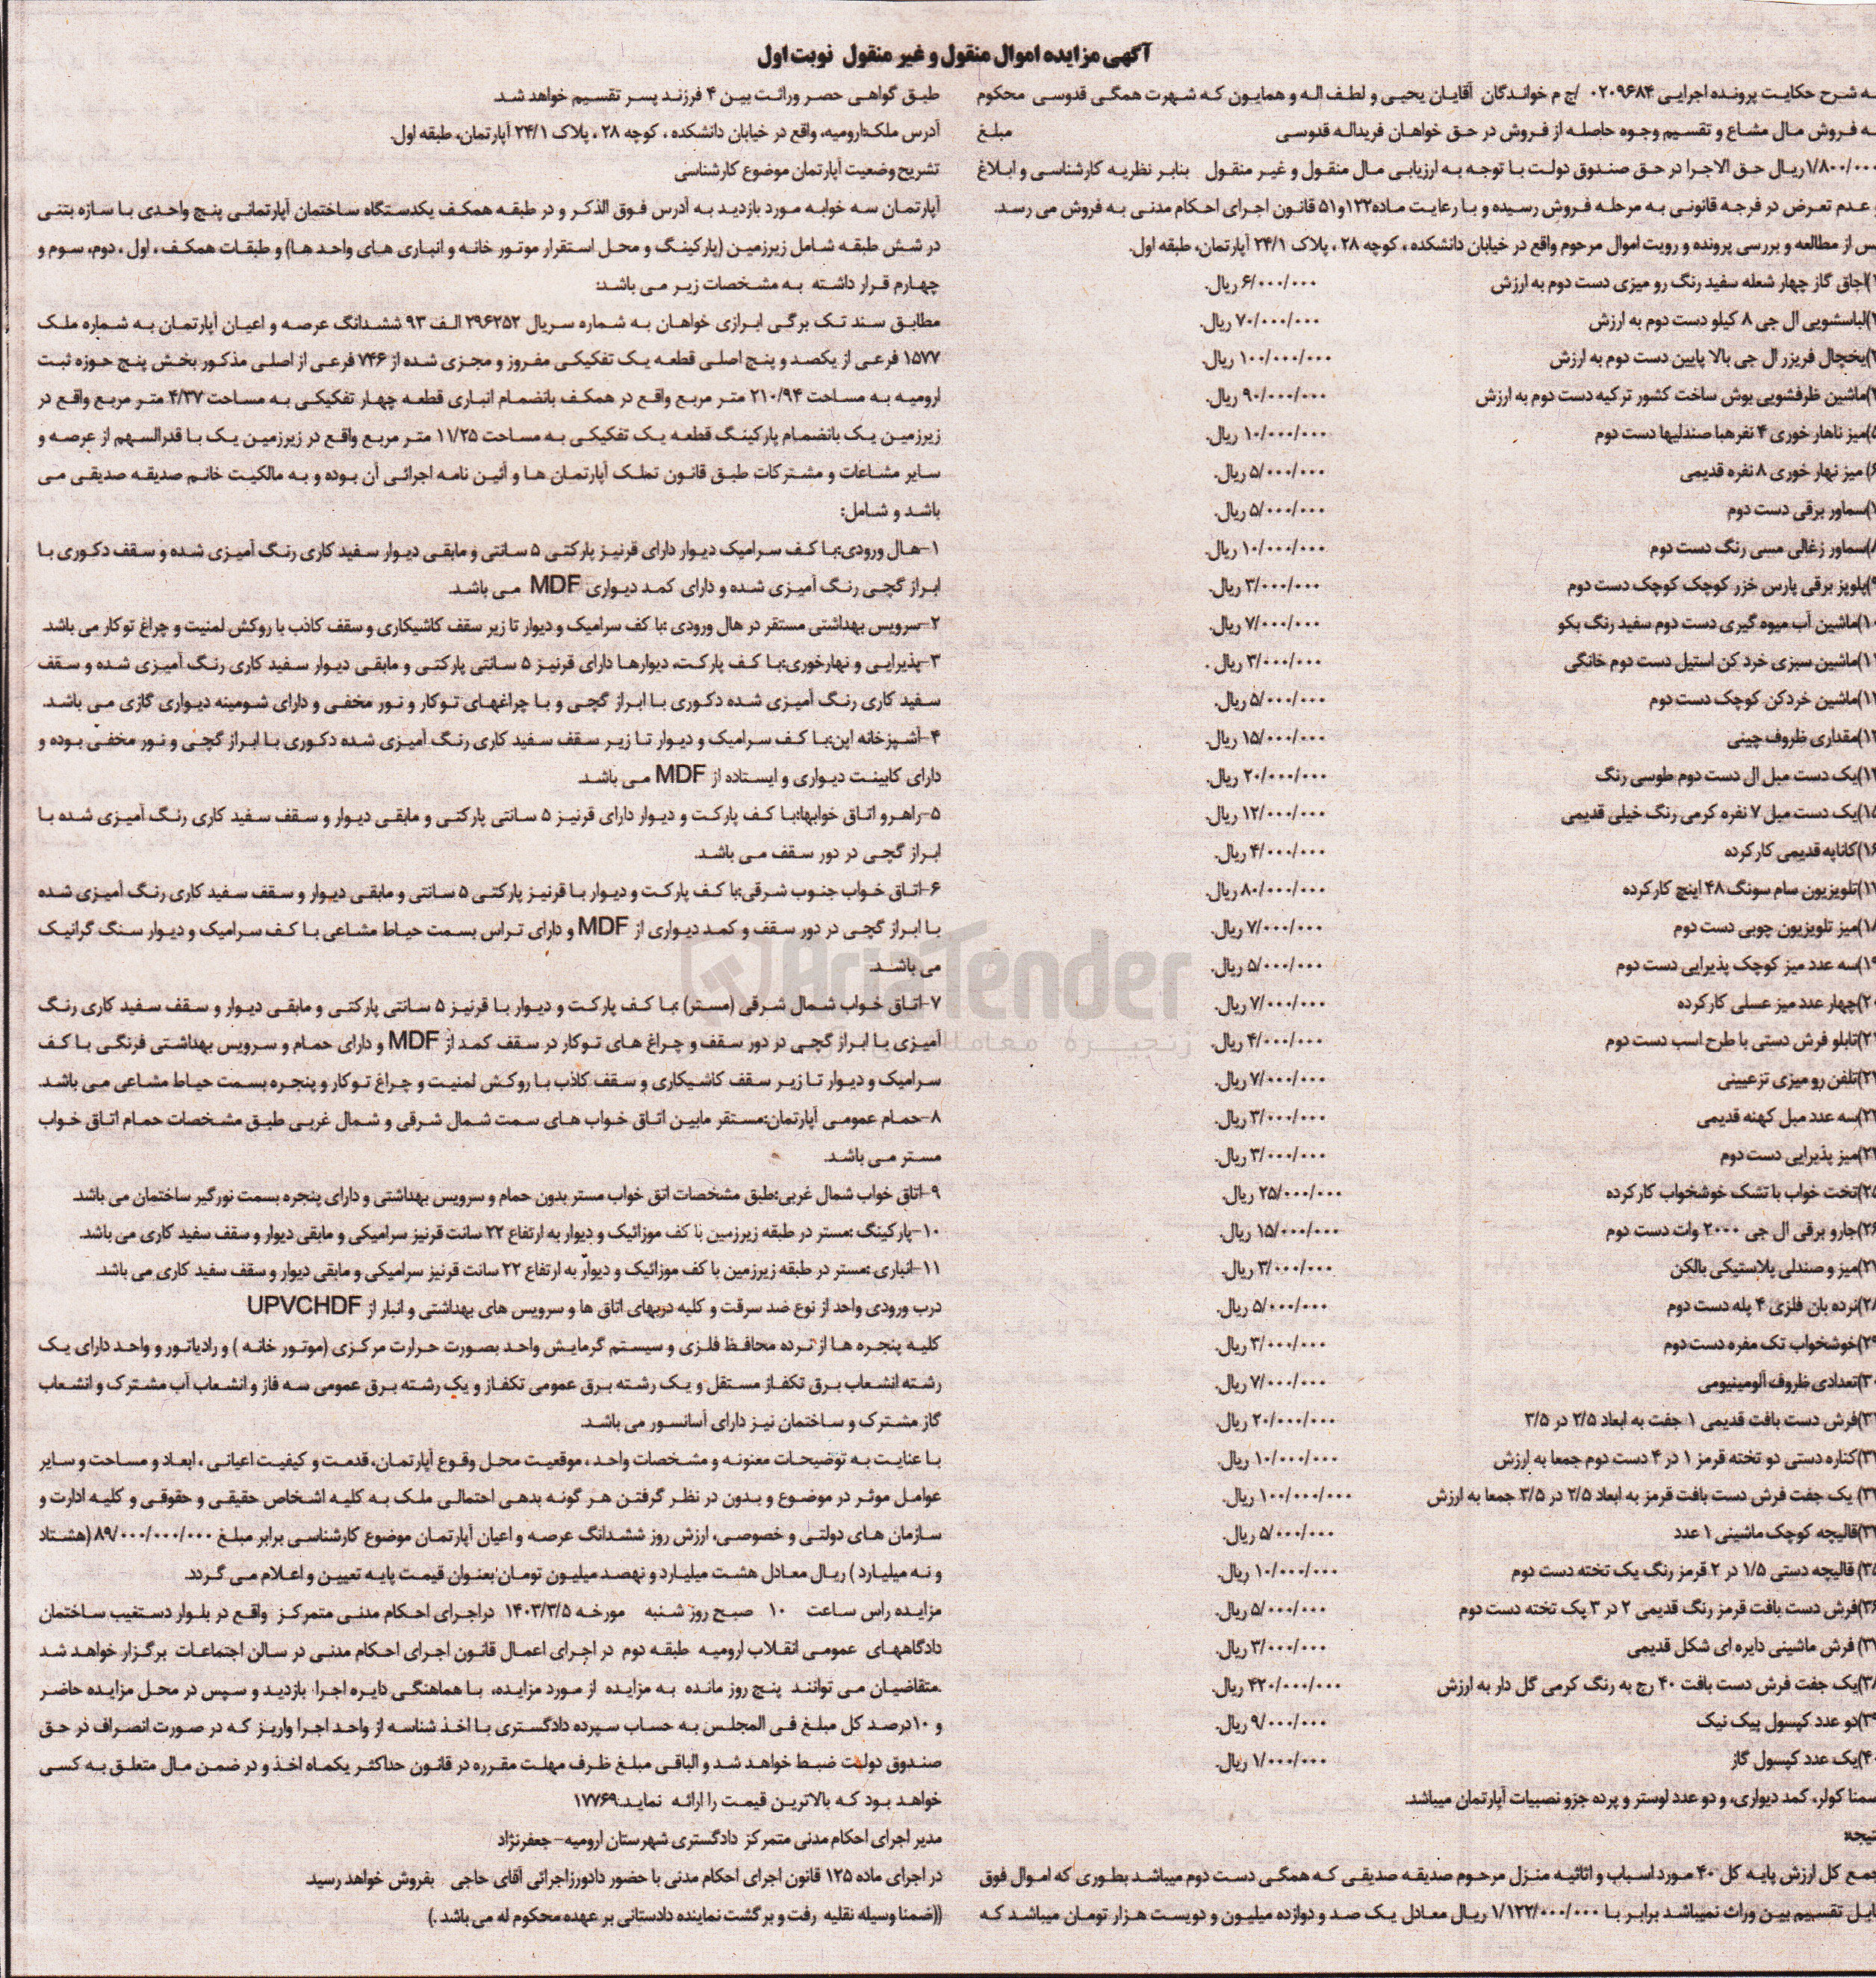 آگهی مزایده اموال منقول و غیر منقول نوبت اول
ـه شرح حکایت پرونده اجرایی ۰۲۰۹۶۸۴ /ج م خواندگان آقایان یحیی و لطف اله و همایون که شهرت همگی قدوسی محکوم
ـه فروش مال مشاع و تقسیم وجوه حاصله از فروش در حق خواهان فریداله قدوسی مبلغ
۱/۸۰۰/۰۰۰ریال حق الاجرا در حق صندوق دولت با توجه به ارزیابی مال منقول و غیر منقول بنابر نظریه کارشناسی و ابلاغ
، عدم تعرض در فرجه قانونی به مرحله فروش رسیده و با رعایت ماده۱۲۲و۵۱ قانون اجرای احکام مدنی به فروش می رسد.
س از مطالعه و بررسی پرونده و رویت اموال مرحوم واقع در خیابان دانشکده ، کوچه ۲۸ ، پلاک ۲۴/۱ آپارتمان، طبقه اول.
)اجاق گاز چهار شعله سفید رنگ رو میزی دست دوم به ارزش ۶/۰۰۰/۰۰۰ ریال.
)لباسشویی ال جی ۸ کیلو دست دوم به ارزش ۷۰/۰۰۰/۰۰۰ ریال.
)یخچال فریزر ال جی بالا پایین دست دوم به ارزش ۱۰۰/۰۰۰/۰۰۰ ریال.
)ماشین ظرفشویی بوش ساخت کشور ترکیه دست دوم به ارزش ۹۰/۰۰۰/۰۰۰ ریال.
۵)میز ناهار خوری ۴ نفرهبا صندلیها دست دوم ۱۰/۰۰۰/۰۰۰ ریال.
۶) میز نهار خوری ۸ نفره قدیمی ۵/۰۰۰/۰۰۰ ریال.
)سماور برقی دست دوم ۵/۰۰۰/۰۰۰ ریال.
۸)سماور زغالی مسی رنگ دست دوم ۱۰/۰۰۰/۰۰۰ ریال.
۹)پلوپز برقی پارس خزر کوچک کوچک دست دوم ۳/۰۰۰/۰۰۰ ریال.
۱۰)ماشین آب میوه گیری دست دوم سفید رنگ بکو ۷/۰۰۰/۰۰۰ ریال.
۱۱)ماشین سبزی خرد کن استیل دست دوم خانگی ۳/۰۰۰/۰۰۰ ریال .
۱۲)ماشین خردکن کوچک دست دوم ۵/۰۰۰/۰۰۰ ریال.
۱۳)مقداری ظروف چینی ۱۵/۰۰۰/۰۰۰ ریال.
۱۴)یک دست مبل ال دست دوم طوسی رنگ ۲۰/۰۰۰/۰۰۰ ریال.
۱۵)یک دست مبل ۷ نفره کرمی رنگ خیلی قدیمی ۱۲/۰۰۰/۰۰۰ ریال.
۱۶)کاناپه قدیمی کارکرده ۴/۰۰۰/۰۰۰ ریال.
۱۷)تلویزیون سام سونگ ۴۸ اینچ کارکرده ۸۰/۰۰۰/۰۰۰ ریال.
۱۸)میز تلویزیون چوبی دست دوم ۷/۰۰۰/۰۰۰ ریال.
۱۹)سه عدد میز کوچک پذیرایی دست دوم ۵/۰۰۰/۰۰۰ ریال.
۲۰)چهار عدد میز عسلی کارکرده ۷/۰۰۰/۰۰۰ ریال.
۲۱)تابلو فرش دستی با طرح اسب دست دوم ۴/۰۰۰/۰۰۰ ریال.
۲۲)تلفن رو میزی تزعیینی ۷/۰۰۰/۰۰۰ ریال.
۲۳)سه عدد مبل کهنه قدیمی ۳/۰۰۰/۰۰۰ ریال.
۲۴)میز پذیرایی دست دوم ۳/۰۰۰/۰۰۰ ریال.
۲۵)تخت خواب با تشک خوشخواب کارکرده ۲۵/۰۰۰/۰۰۰ ریال.
۲۶)جارو برقی ال جی ۲۰۰۰ وات دست دوم ۱۵/۰۰۰/۰۰۰ ریال.
۲۷)میز و صندلی پلاستیکی بالکن ۳/۰۰۰/۰۰۰ ریال.
۲۸)نرده بان فلزی ۴ پله دست دوم ۵/۰۰۰/۰۰۰ ریال.
۲۹)خوشخواب تک مفره دست دوم ۳/۰۰۰/۰۰۰ ریال.
۳۰)تعدادی ظروف آلومینیومی ۷/۰۰۰/۰۰۰ ریال.
۳۱)فرش دست بافت قدیمی ۱ جفت به ابعاد ۲/۵ در ۳/۵ ۲۰/۰۰۰/۰۰۰ ریال.
۳۲)کناره دستی دو تخته قرمز ۱ در ۴ دست دوم جمعا به ارزش ۱۰/۰۰۰/۰۰۰ ریال.
۳۳) یک جفت فرش دست بافت قرمز به ابعاد ۲/۵ در ۳/۵ جمعا به ارزش ۱۰۰/۰۰۰/۰۰۰ ریال.
۳۴)قالیچه کوچک ماشینی ۱ عدد ۵/۰۰۰/۰۰۰ ریال.
۳۵) قالیچه دستی ۱/۵ در ۲ قرمز رنگ یک تخته دست دوم ۱۰/۰۰۰/۰۰۰ ریال.
۳۶)فرش دست بافت قرمز رنگ قدیمی ۲ در ۳ یک تخته دست دوم ۵/۰۰۰/۰۰۰ ریال.
۳۷) فرش ماشینی دایره ای شکل قدیمی ۳/۰۰۰/۰۰۰ ریال.
۳۸)یک جفت فرش دست بافت ۴۰ رج به رنگ کرمی گل دار به ارزش ۴۲۰/۰۰۰/۰۰۰ ریال.
۳۹)دو عدد کپسول پیک نیک ۹/۰۰۰/۰۰۰ ریال.
۴۰)یک عدد کپسول گاز ۱/۰۰۰/۰۰۰ ریال.
سمنا کولر، کمد دیواری، و دو عدد لوستر و پرده جزو نصبیات آپارتمان میباشد.
تیجه:
جمع کل ارزش پایه کل ۴۰ مورد اسباب و اثاثیه منزل مرحوم صدیقه صدیقی که همگی دست دوم میباشد بطوری که اموال فوق
ـابل تقسیم بین وراث نمیباشد برابر با ۱/۱۲۲/۰۰۰/۰۰۰ ریال معادل یک صد و دوازده میلیون و دویست هزار تومان میباشد که
طبق گواهی حصر وراثت بین ۴ فرزند پسر تقسیم خواهد شد.
آدرس ملک:ارومیه، واقع در خیابان دانشکده ، کوچه ۲۸ ، پلاک ۲۴/۱ آپارتمان، طبقه اول.
تشریح وضعیت آپارتمان موضوع کارشناسی
آپارتمان سه خوابه مورد بازدید به آدرس فوق الذکر و در طبقه همکف یکدستگاه ساختمان آپارتمانی پنج واحدی با سازه بتنی
در شش طبقه شامل زیرزمین (پارکینگ و محل استقرار موتور خانه و انباری های واحد ها) و طبقات همکف ، اول ، دوم، سوم و
چهارم قرار داشته به مشخصات زیر می باشد:
مطابق سند تک برگی ابرازی خواهان به شماره سریال ۲۹۶۲۵۲ الف ۹۳ ششدانگ عرصه و اعیان آپارتمان به شماره ملک
۱۵۷۷ فرعی از یکصد و پنج اصلی قطعه یک تفکیکی مفروز و مجزی شده از ۷۴۶ فرعی از اصلی مذکور بخش پنج حوزه ثبت
ارومیه به مساحت ۲۱۰/۹۴ متر مربع واقع در همکف بانضمام انباری قطعه چهار تفکیکی به مساحت ۴/۳۷ متر مربع واقع در
زیرزمین یک بانضمام پارکینگ قطعه یک تفکیکی به مساحت ۱۱/۲۵ متر مربع واقع در زیرزمین یک با قدرالسهم از عرصه و
سایر مشاعات و مشترکات طبق قانون تملک آپارتمان ها و آئین نامه اجرائی آن بوده و به مالکیت خانم صدیقه صدیقی می
باشد و شامل:
۱-هال ورودی:با کف سرامیک دیوار دارای قرنیز پارکتی ۵ سانتی و مابقی دیوار سفید کاری رنگ آمیزی شده و سقف دکوری با
ابراز گچی رنگ آمیزی شده و دارای کمد دیواری MDF می باشد.
۲-سرویس بهداشتی مستقر در هال ورودی :با کف سرامیک و دیوار تا زیر سقف کاشیکاری و سقف کاذب با روکش لمنیت و چراغ توکار می باشد.
۳-پذیرایی و نهارخوری:با کف پارکت، دیوارها دارای قرنیز ۵ سانتی پارکتی و مابقی دیوار سفید کاری رنگ آمیزی شده و سقف
سفید کاری رنگ آمیزی شده دکوری با ابراز گچی و با چراغهای توکار و نور مخفی و دارای شومینه دیواری گازی می باشد.
۴-آشپزخانه اپن:با کف سرامیک و دیوار تا زیر سقف سفید کاری رنگ آمیزی شده دکوری با ابراز گچی و نور مخفی بوده و
دارای کابینت دیواری و ایستاده از MDF می باشد.
۵-راهرو اتاق خوابها:با کف پارکت و دیوار دارای قرنیز ۵ سانتی پارکتی و مابقی دیوار و سقف سفید کاری رنگ آمیزی شده با
ابراز گچی در دور سقف می باشد.
۶-اتاق خواب جنوب شرقی:با کف پارکت و دیوار با قرنیز پارکتی ۵ سانتی و مابقی دیوار و سقف سفید کاری رنگ آمیزی شده
با ابراز گچی در دور سقف و کمد دیواری از MDF و دارای تراس بسمت حیاط مشاعی با کف سرامیک و دیوار سنگ گرانیک
می باشد.
۷-اتاق خواب شمال شرقی (مستر) :با کف پارکت و دیوار با قرنیز ۵ سانتی پارکتی و مابقی دیوار و سقف سفید کاری رنگ
آمیزی با ابراز گچی در دور سقف و چراغ های توکار در سقف کمد از MDF و دارای حمام و سرویس بهداشتی فرنگی با کف
سرامیک و دیوار تا زیر سقف کاشیکاری و سقف کاذب با روکش لمنیت و چراغ توکار و پنجره بسمت حیاط مشاعی می باشد.
۸-حمام عمومی آپارتمان:مستقر مابین اتاق خواب های سمت شمال شرقی و شمال غربی طبق مشخصات حمام اتاق خواب
مستر می باشد.
۹-اتاق خواب شمال غربی:طبق مشخصات اتق خواب مستر بدون حمام و سرویس بهداشتی و دارای پنجره بسمت نورگیر ساختمان می باشد.
۱۰-پارکینگ :مستر در طبقه زیرزمین با کف موزائیک و دیوار به ارتفاع ۲۲ سانت قرنیز سرامیکی و مابقی دیوار و سقف سفید کاری می باشد.
۱۱-انباری :مستر در طبقه زیرزمین با کف موزائیک و دیوار به ارتفاع ۲۲ سانت قرنیز سرامیکی و مابقی دیوار و سقف سفید کاری می باشد.
درب ورودی واحد از نوع ضد سرقت و کلیه دربهای اتاق ها و سرویس های بهداشتی و انبار از UPVCHDF
کلیه پنجره ها از نرده محافظ فلزی و سیستم گرمایش واحد بصورت حرارت مرکزی (موتور خانه ) و رادیاتور و واحد دارای یک
رشته انشعاب برق تکفاز مستقل و یک رشته برق عمومی تکفاز و یک رشته برق عمومی سه فاز و انشعاب آب مشترک و انشعاب
گاز مشترک و ساختمان نیز دارای آسانسور می باشد.
با عنایت به توضیحات معنونه و مشخصات واحد ، موقعیت محل وقوع آپارتمان، قدمت و کیفیت اعیانی ، ابعاد و مساحت و سایر
عوامل موثر در موضوع و بدون در نظر گرفتن هر گونه بدهی احتمالی ملک به کلیه اشخاص حقیقی و حقوقی و کلیه ادارت و
سازمان های دولتی و خصوصی، ارزش روز ششدانگ عرصه و اعیان آپارتمان موضوع کارشناسی برابر مبلغ ۸۹/۰۰۰/۰۰۰/۰۰۰ (هشتاد
و نه میلیارد ) ریال معادل هشت میلیارد و نهصد میلیون تومان بعنوان قیمت پایه تعیین و اعلام می گردد.
مزایده راس ساعت ۱۰ صبح روز شنبه مورخه ۱۴۰۳/۳/۵ دراجرای احکام مدنی متمرکز واقع در بلوار دستغیب ساختمان
دادگاههای عمومی انقلاب ارومیه طبقه دوم در اجرای اعمال قانون اجرای احکام مدنی در سالن اجتماعات برگزار خواهد شد
.متقاضیان می توانند پنج روز مانده به مزایده از مورد مزایده، با هماهنگی دایره اجرا بازدید و سپس در محل مزایده حاضر
و ۱۰درصد کل مبلغ فی المجلس به حساب سپرده دادگستری با اخذ شناسه از واحد اجرا واریز که در صورت انصراف در حق
صندوق دولت ضبط خواهد شد و الباقی مبلغ ظرف مهلت مقرره در قانون حداکثر یکماه اخذ و در ضمن مال متعلق به کسی
خواهد بود که بالاترین قیمت را ارائه نماید.۱۷۷۶۹
مدیر اجرای احکام مدنی متمرکز دادگستری شهرستان ارومیه-جعفرنژاد
در اجرای ماده ۱۲۵ قانون اجرای احکام مدنی با حضور دادورزاجرائی آقای حاجی بفروش خواهد رسید.
((ضمنا وسیله نقلیه رفت و برگشت نماینده دادستانی بر عهده محکوم له می باشد.)
AriaTender